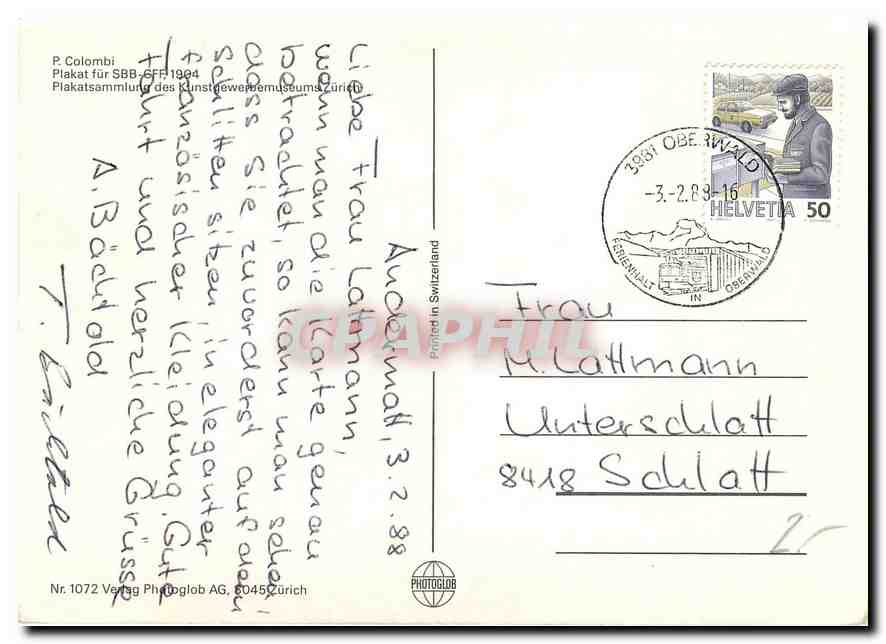 P. Colombi
Plakat für SBB-CFF, 1904
Plakatsammlung des Kunstgewerbemuseums Zürich
Andermatt, 3.2.88
Liebe Frau Lattmann,
wenn man die Karte genau
betrachtet, so kann man sehen
dass Sie zuvorderst auf dem
Schlitten sitzen, in eleganter
französischer Kleidung. Gute
Fahrt und herzliche Grüsse
A. Bächtold
T. Bächtold
Nr. 1072 Verlag Photoglob AG, 8045 Zürich
Printed in Switzerland
PHOTOGLOB
CPAPHIL
3981 OBERWALD
-3.-2.88-16
FERIENHALT IN OBERWALD
HELVETIA 50
Frau
M. Lattmann
Unterschlatt
8418 Schlatt
2.-